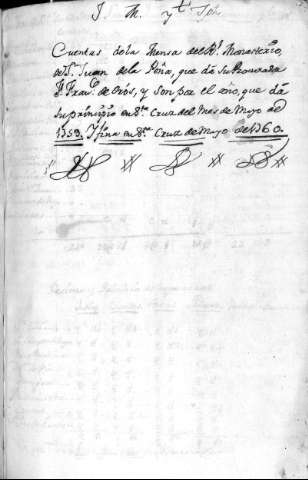 J. M. y Jph
Cuentas de la Mensa del Rl. Monasterio,
de Sn. Juan de la Peña, que dá su Procurador
Dn. Franco. de Orós, y son por el año, que dá
su principio en Sta. Cruz del Mes de Mayo de
1759. Y fina en Sta. Cruz de Mayo de 1760.